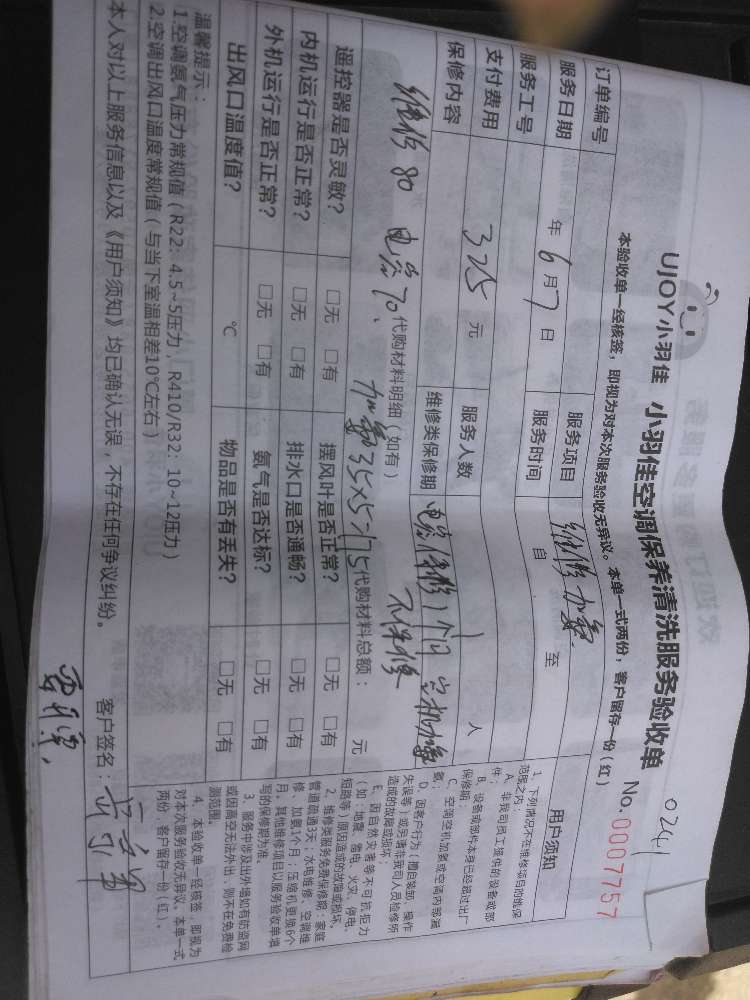 0241
UJOY小羽佳 小羽佳空调保养清洗服务验收单 No.0007757
本验收单一经核签，即视为对本次服务验收无异议。本单一式两份，客户留存一份（红）
订单编号
服务日期 年 6 月 7 日 服务项目 维修加氨
服务工号 服务时间 自 至
支付费用 325 元 服务人数 1 人
保修内容 维修类保修期 电容保修1个月 空机加氨
不保修
维修 80 电容70、 加氨35×5=175
代购材料明细（如有） 代购材料总额： 元
遥控器是否灵敏? □无 □有 摆风叶是否正常? □无 □有
内机运行是否正常? □无 □有 排水口是否通畅? □无 □有
外机运行是否正常? □无 □有 氨气是否达标? □无 □有
出风口温度值? ℃ 物品是否有丢失? □无 □有
温馨提示：
1.空调氨气压力常规值（R22：4.5~5压力，R410/R32：10~12压力）
2.空调出风口温度常规值（与当下室温相差10℃左右）
本人对以上服务信息以及《用户须知》均已确认无误，不存在任何争议纠纷。 客户签名：
用户须知
1、下列情况不在维修项目的维保
范围之内：
A、非我司员工提供的设备或部
件；
B、设备或部件本身已经超过出厂
保修期；
C、空调空机加氨或空调内部漏
氨；
D、因客户行为（擅自装卸、操作
失误等）或另请非我司人员检修所
造成的故障或损坏；
E、因自然灾害等不可抗拒力
（如：地震、雷电、火灾、停电、
短路等）原因造成的故障或损坏。
2、维修类服务免费保修期：家庭
管道疏通3天；水电维修、空调维
修、加氨1个月；压缩机更换6个
月，其他维修项目以服务验收单填
写的保修期为准。
3、服务中涉及出外墙如有防盗网
或因高空无法外出，则不在免费检
测范围。
4、本验收单一经核签，即视为
对本次服务验收无异议。本单一式
两份，客户留存一份（红）。